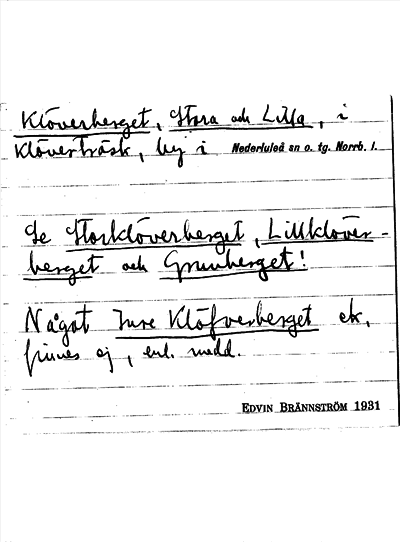 Klöverberget, Stora och Lilla, i
Klöverträsk, by i Nederluleå sn o. tg. Norrb. l.
Se Storklöverberget, Lillklöver-
berget och Grunberget!
Något Inre Klöfverberget etc.
finnes ej, enl. medd.
EDVIN BRÄNNSTRÖM 1931